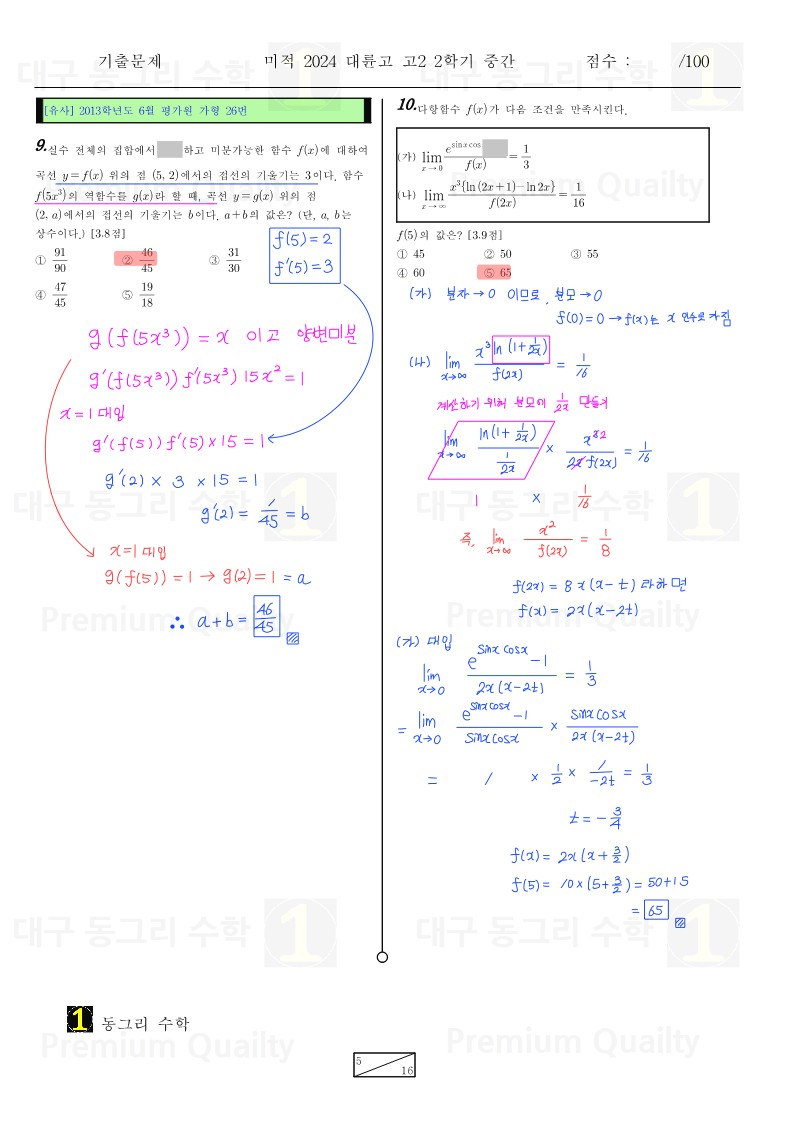 기출문제 미적 2024 대륜고 고2 2학기 중간 점수 : /100
[유사] 2013학년도 6월 평가원 가형 26번
9. 실수 전체의 집합에서 하고 미분가능한 함수 f(x)에 대하여
곡선 y=f(x) 위의 점 (5, 2)에서의 접선의 기울기는 3이다. 함수
f(5x³)의 역함수를 g(x)라 할 때, 곡선 y=g(x) 위의 점
(2, a)에서의 접선의 기울기는 b이다. a+b의 값은? (단, a, b는
상수이다.) [3.8점]
① 91/90 ② 46/45 ③ 31/30
④ 47/45 ⑤ 19/18
f(5)=2
f′(5)=3
g(f(5x³))=x 이고 양변미분
g′(f(5x³))f′(5x³)15x²=1
x=1 대입
g′(f(5))f′(5)×15=1
g′(2) × 3 × 15 = 1
g′(2) = 1/45 = b
x=1 대입
g(f(5))=1 → g(2)=1 = a
∴ a+b = 46/45
10. 다항함수 f(x)가 다음 조건을 만족시킨다.
(가) lim x→0 e^(sinxcos /f(x) = 1/3
(나) lim x→∞ x³{ln(2x+1)−ln2x}/f(2x) = 1/16
f(5)의 값은? [3.9점]
① 45 ② 50 ③ 55
④ 60 ⑤ 65
(가) 분자→0 이므로, 분모→0
f(0)=0 → f(x)는 x 인수로 가짐
(나) lim x→∞ x³ln(1+1/2x)/f(2x) = 1/16
계산하기 위해 분모에 1/2x 만들기
lim x→∞ ln(1+1/2x)/(1/2x) × x^(3 2)/2x f(2x) = 1/16
1 × 1/16
즉, lim x→∞ x²/f(2x) = 1/8
f(2x) = 8x(x−t) 라하면
f(x) = 2x(x−2t)
(가) 대입
lim x→0 (e^(sinx cosx) −1)/2x(x−2t) = 1/3
= lim x→0 (e^(sinxcosx) −1)/sinxcosx × sinxcosx/2x(x−2t)
= 1 × 1/2 × 1/−2t = 1/3
t = −3/4
f(x) = 2x(x+3/2)
f(5) = 10×(5+3/2) = 50+15
= 65
1 동그리 수학
5 16
대구 동그리 수학 1
Premium Quailty
대구 동그리 수학 1
Premium Quailty
대구 동그리 수학 1
Premium Quailty
대구 동그리 수학 1
Premium Quailty
대구 동그리 수학 1
Premium Quailty
대구 동그리 수학 1
Premium Quailty